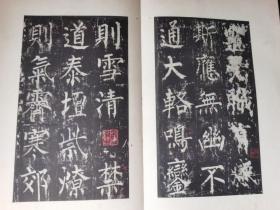 斯應無幽不
通大輅鳴鑾
則雪清禁
道泰壇祡燎
則氣霽寒郊